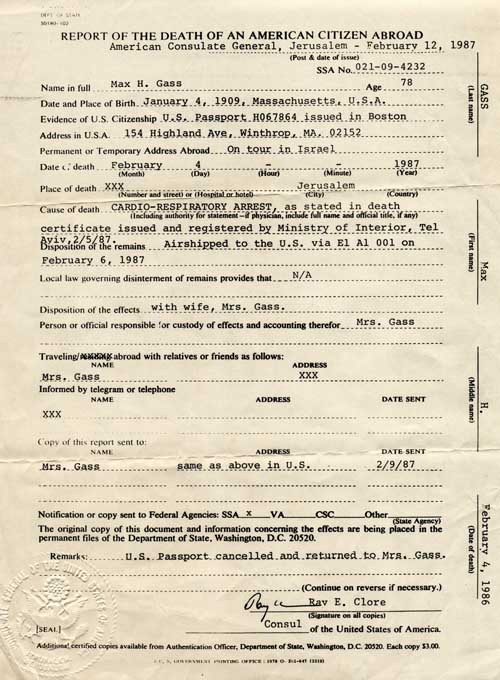 DEPT OF STATE
REPORT OF THE DEATH OF AN AMERICAN CITIZEN ABROAD
American Consulate General, Jerusalem - February 12, 1987
(Post & date of issue)
SSA No. 021-09-4232
Name in full Max H. Gass Age 78
Date and Place of Birth January 4, 1909, Massachusetts, U.S.A.
Evidence of U.S. Citizenship U.S. Passport H067864 issued in Boston
Address in U.S.A. 154 Highland Ave, Winthrop, MA. 02152
Permanent or Temporary Address Abroad On tour in Israel
Date of death February 4 - - 1987
(Month) (Day) (Hour) (Minute) (Year)
Place of death XXX Jerusalem
(Number and street) or (Hospital or hotel) (City) (Country)
Cause of death CARDIO-RESPIRATORY ARREST, as stated in death
(Including authority for statement—if physician, include full name and official title, if any)
certificate issued and registered by Ministry of Interior, Tel
Aviv, 2/5/87.
Disposition of the remains Airshipped to the U.S. via El Al 001 on
February 6, 1987
Local law governing disinterment of remains provides that N/A
Disposition of the effects with wife, Mrs. Gass.
Person or official responsible for custody of effects and accounting therefor Mrs. Gass
Traveling/ abroad with relatives or friends as follows:
NAME ADDRESS
Mrs. Gass XXX
Informed by telegram or telephone
NAME ADDRESS DATE SENT
XXX
Copy of this report sent to:
NAME ADDRESS DATE SENT
Mrs. Gass same as above in U.S. 2/9/87
Notification or copy sent to Federal Agencies: SSA x VA CSC Other
(State Agency)
The original copy of this document and information concerning the effects are being placed in the
permanent files of the Department of State, Washington, D.C. 20520.
Remarks: U.S. Passport cancelled and returned to Mrs. Gass.
(Continue on reverse if necessary.)
Ray E. Clore
(Signature on all copies)
[SEAL] Consul of the United States of America.
Additional certified copies available from Authentication Officer, Department of State, Washington, D.C. 20520. Each copy $3.00.
U.S. GOVERNMENT PRINTING OFFICE : 1978 O
GASS
(Last name)
Max
(First name)
H.
(Middle name)
February 4, 1986
(Date of death)